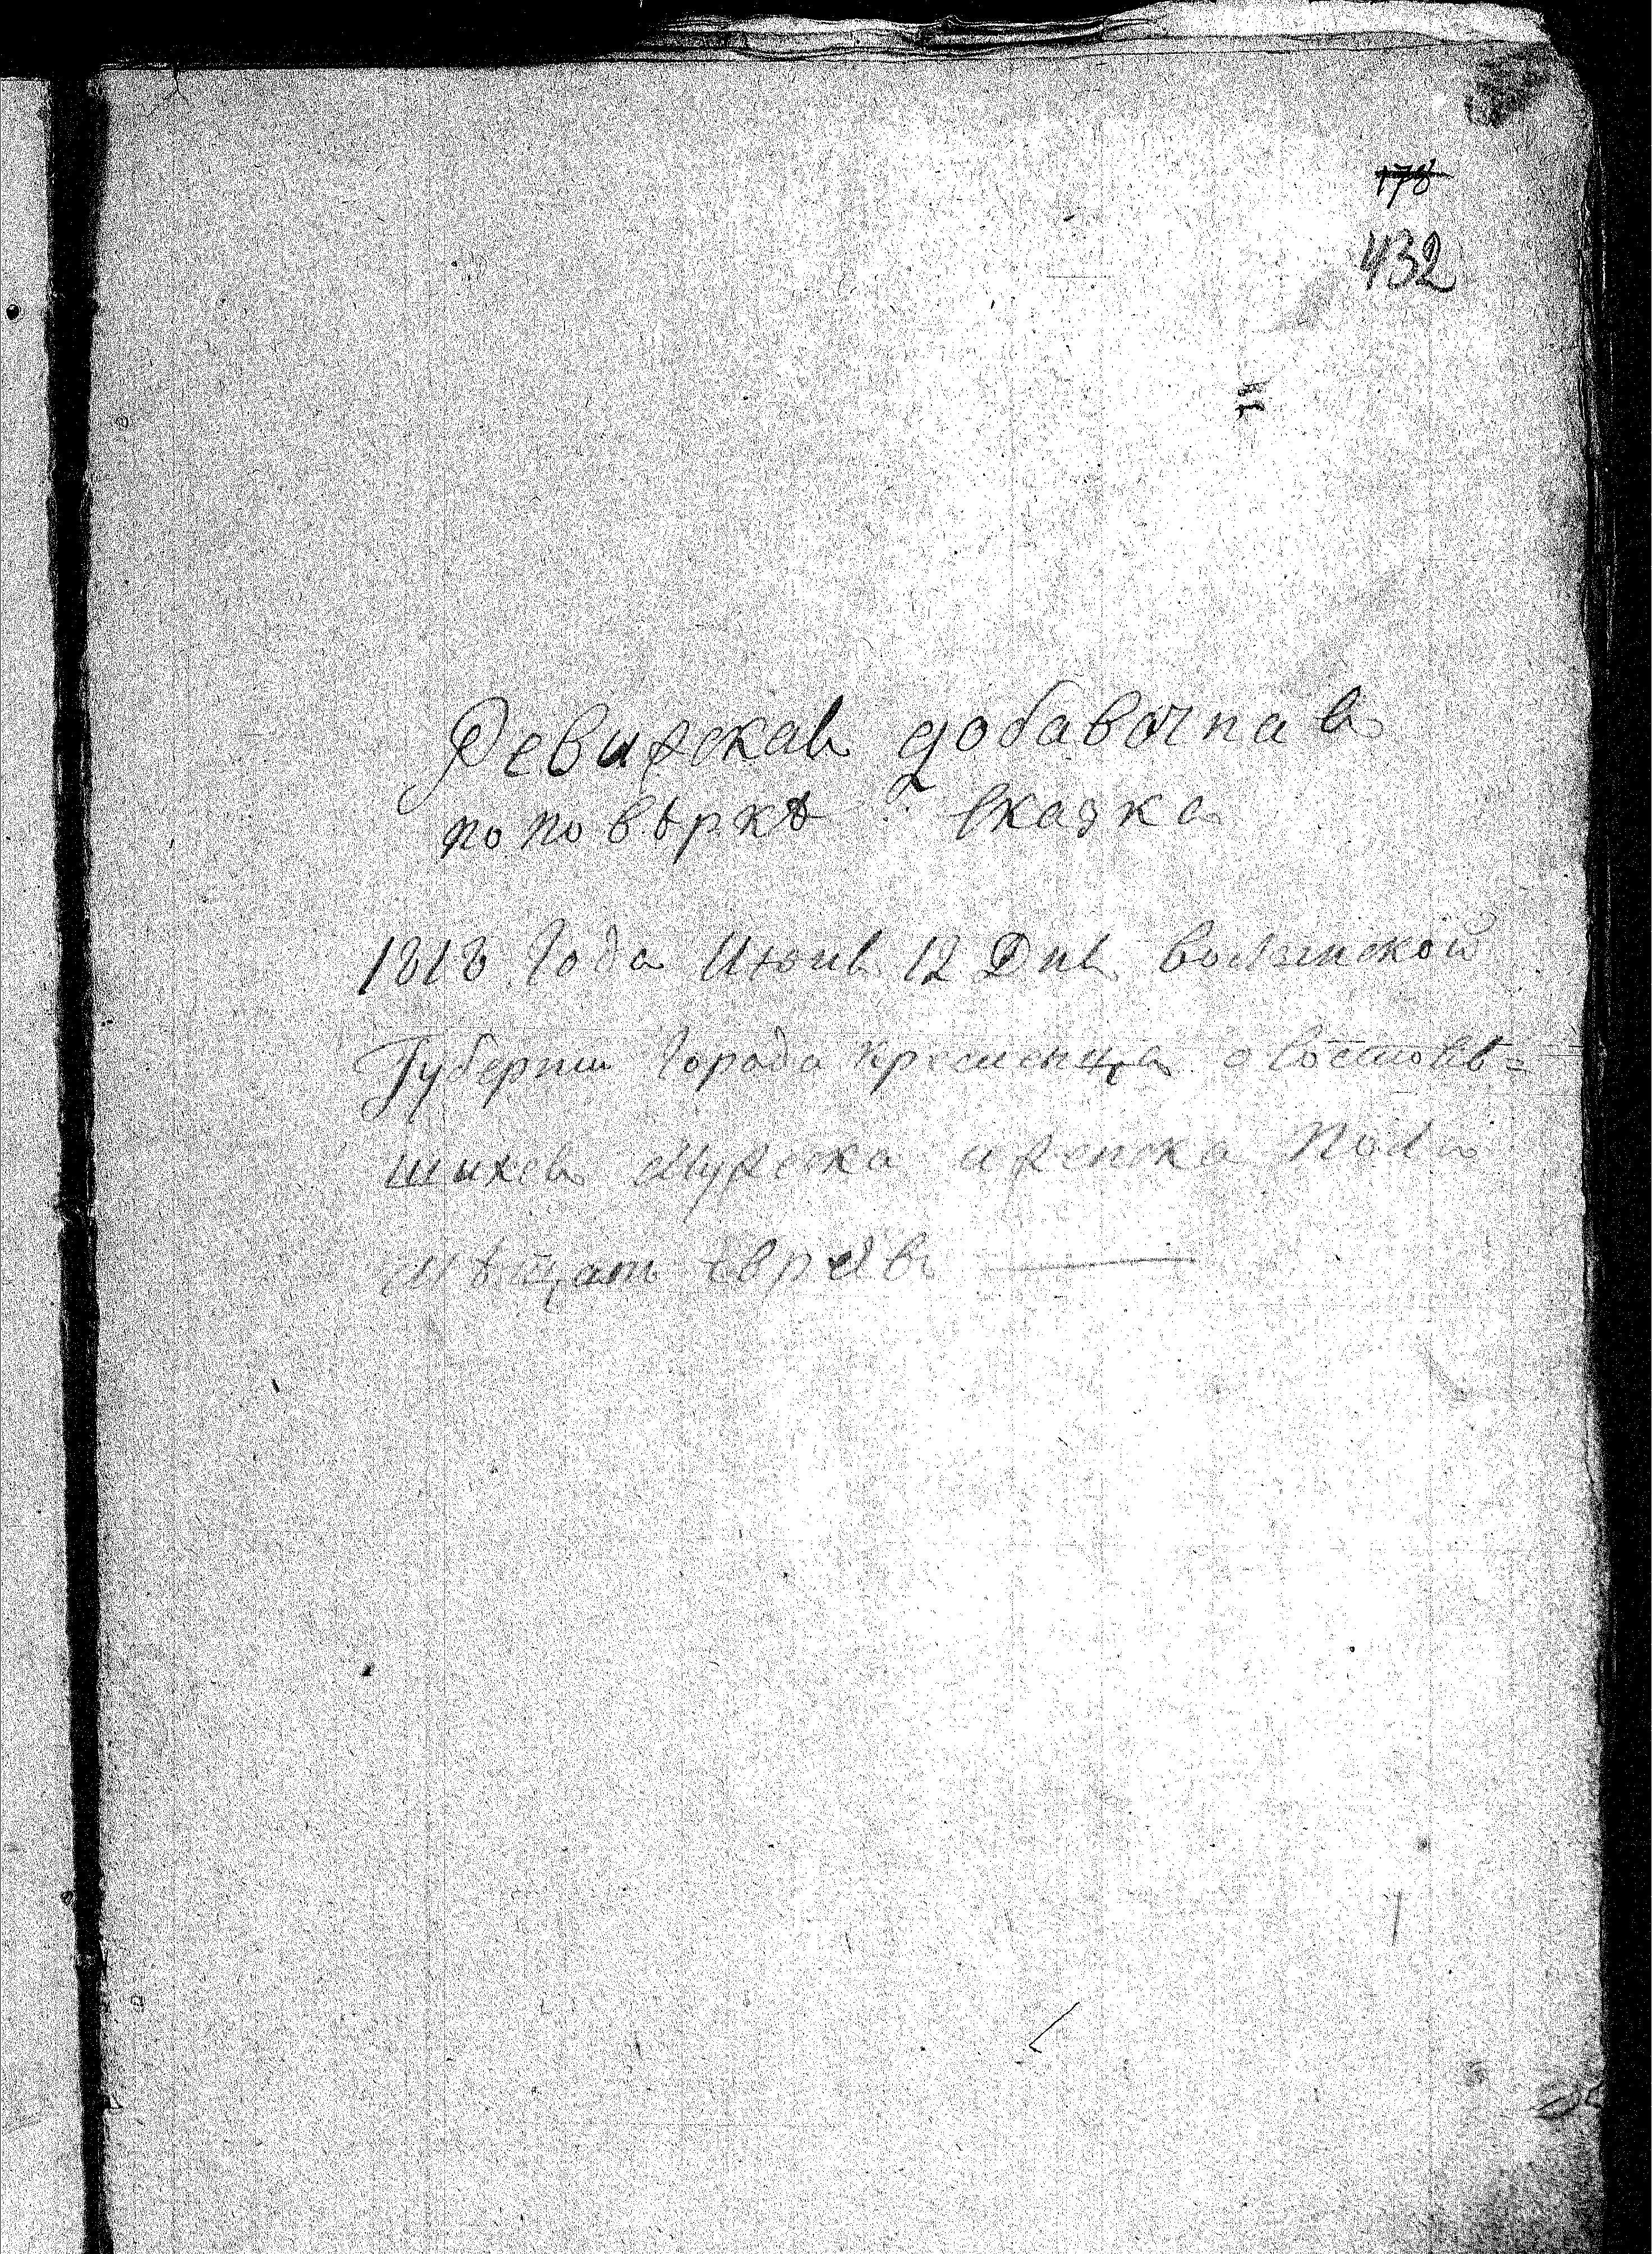 178
432
Ревизская добавочная
по повѣркѣ сказка
1818 Года Июня 12 Дня волынской
Губернии города кременца о состояв=
шихся мужеска и женска пола
мѣщанъ евреяхъ